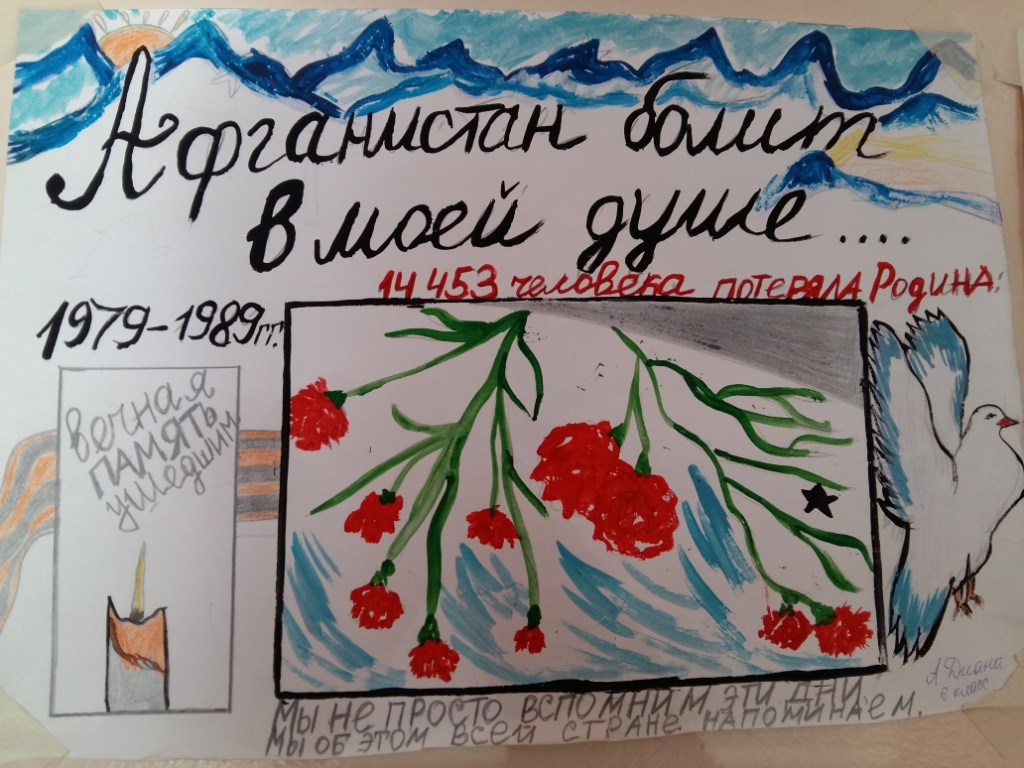 Афганистан болит
в моей душе....
14 453 человека потеряла Родина!
1979-1989гг.
вечная
ПАМЯТЬ
ушедшим
МЫ НЕ ПРОСТО ВСПОМНИМ ЭТИ ДНИ,
МЫ ОБ ЭТОМ ВСЕЙ СТРАНЕ НАПОМИНАЕМ.
А Диана
6 класс